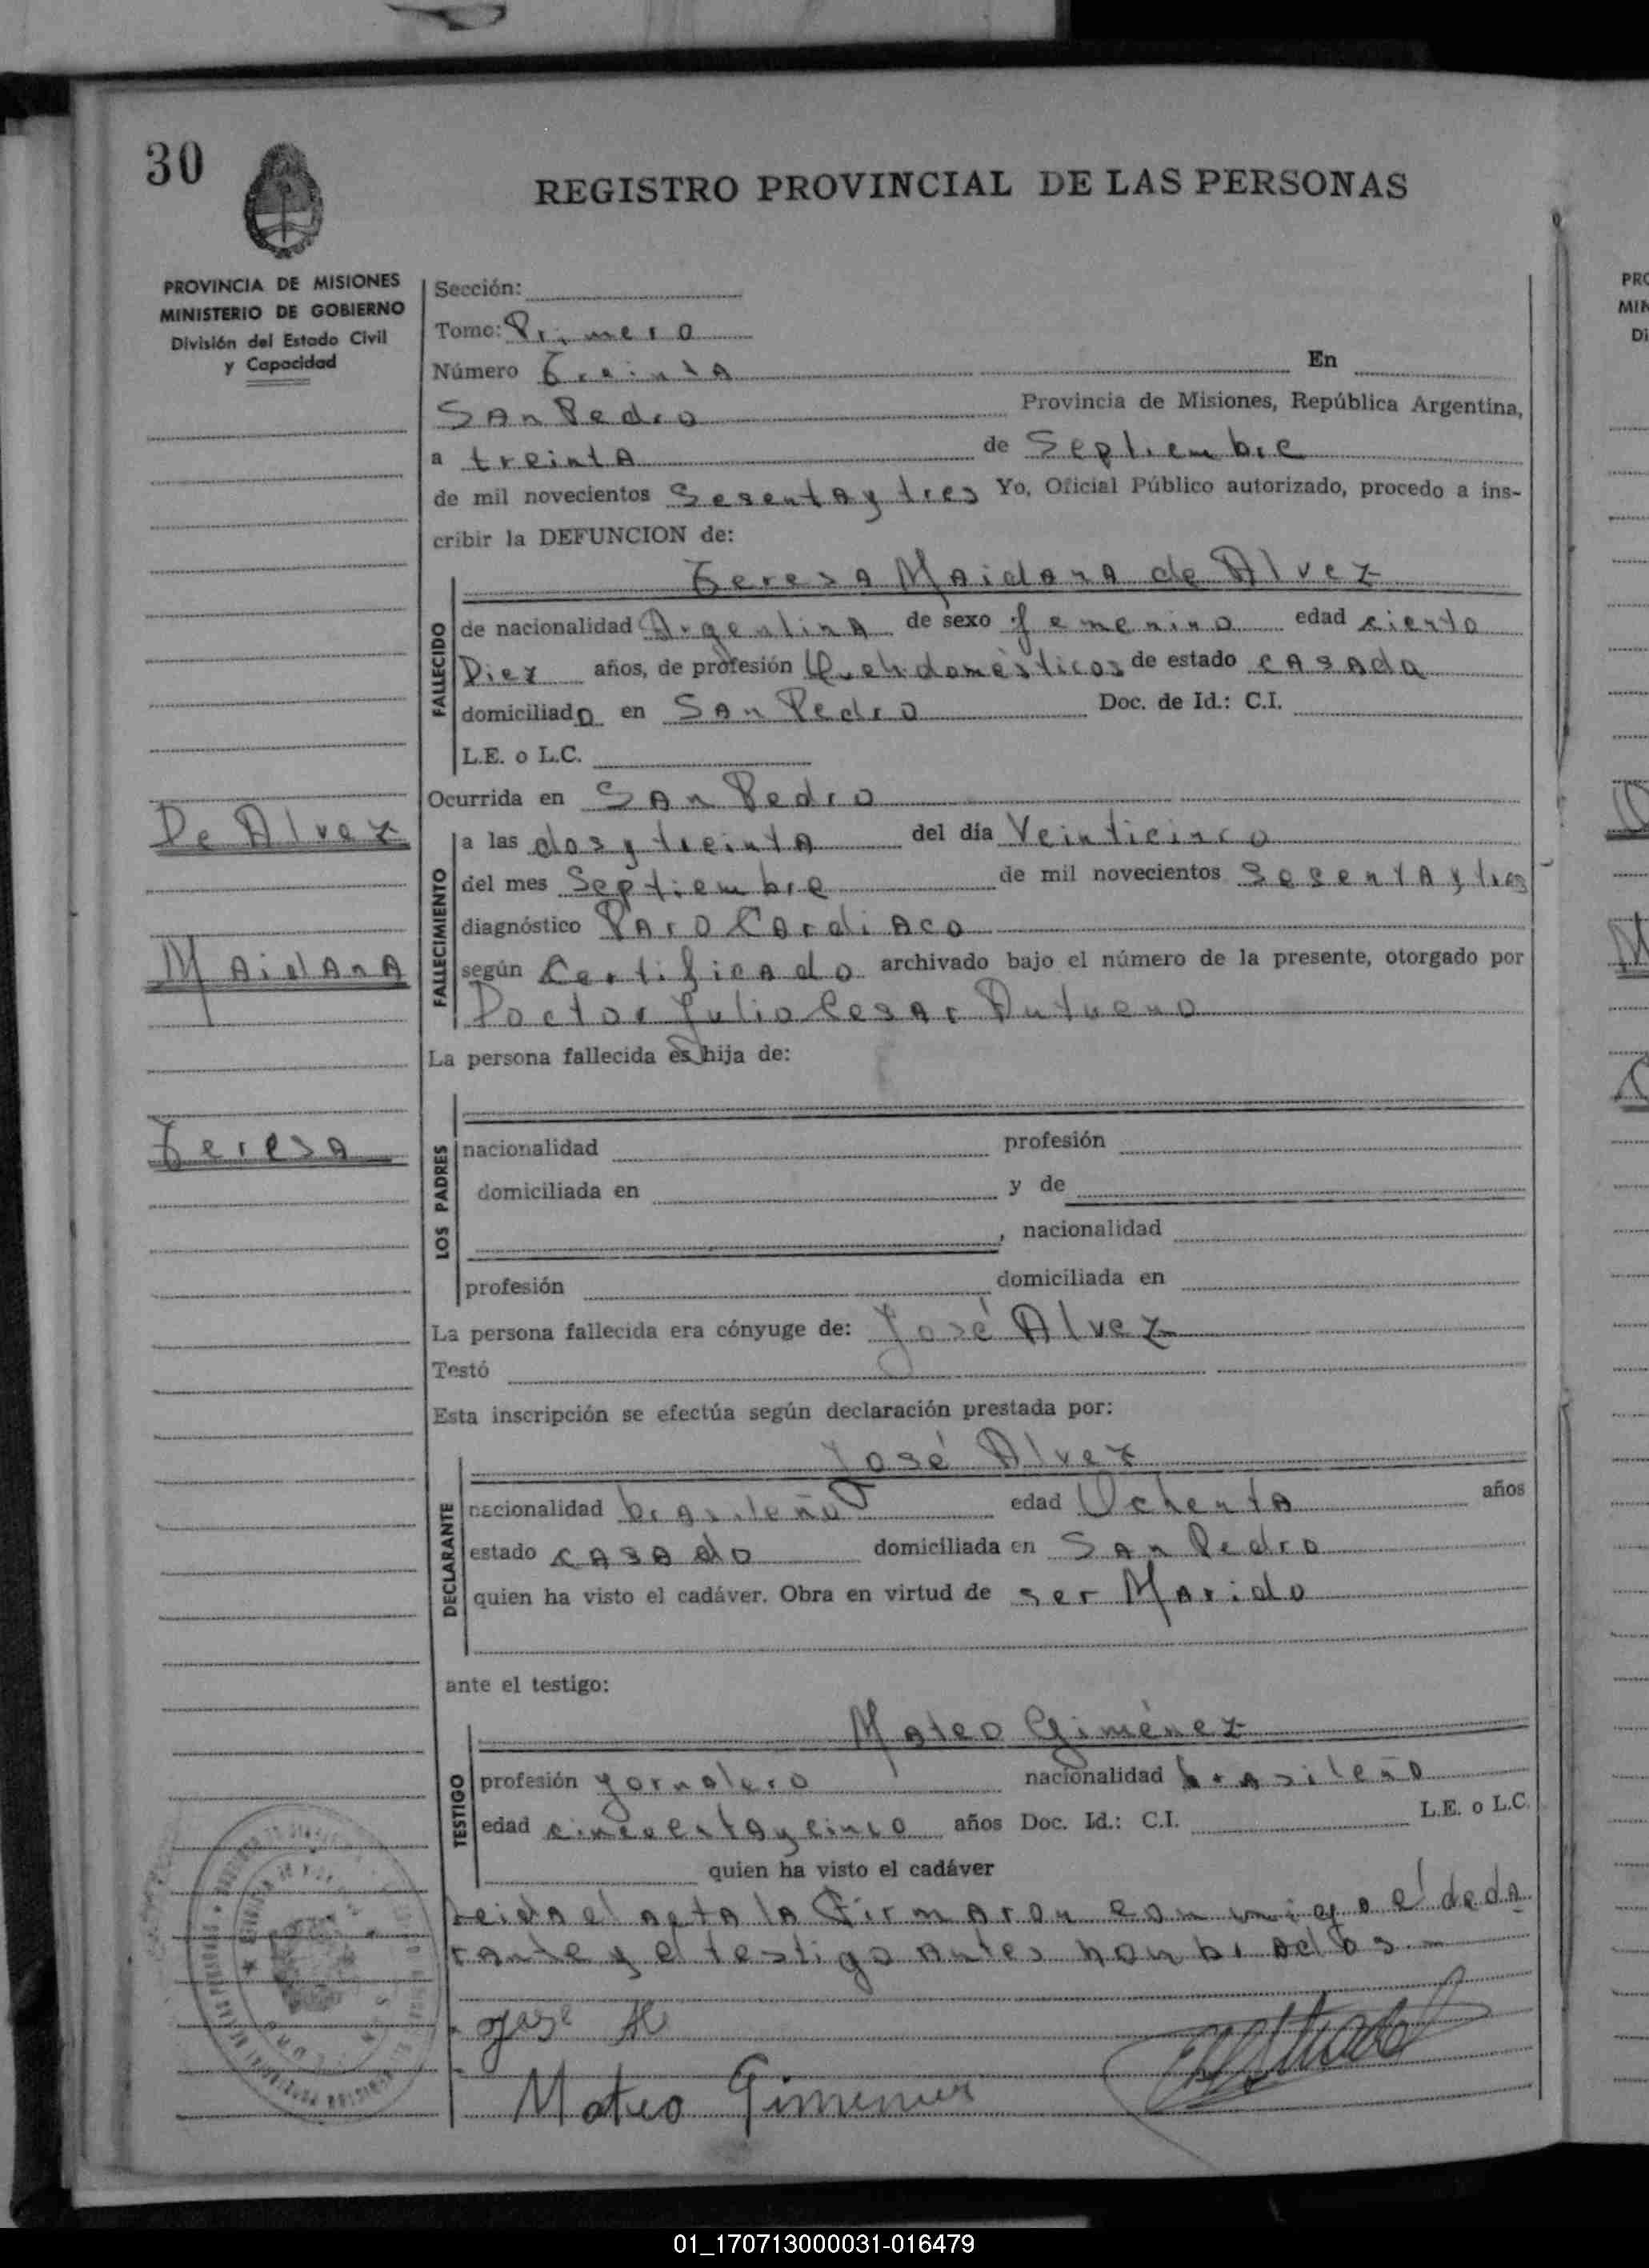 30
REGISTRO PROVINCIAL DE LAS PERSONAS
PROVINCIA DE MISIONES
MINISTERIO DE GOBIERNO
División del Estado Civil
y Capacidad
Sección:
Tomo: Primero
Número Treinta En
San Pedro Provincia de Misiones, República Argentina,
a treinta de Septiembre
de mil novecientos Sesenta y tres Yo, Oficial Público autorizado, procedo a ins-
cribir la DEFUNCION de:
Teresa Maidana de Alvez
FALLECIDO
de nacionalidad Argentina de sexo femenino edad ciento
Diez años, de profesión Queh. domésticos de estado casada
domiciliado en San Pedro Doc. de Id.: C.I.
L.E. o L.C.
Ocurrida en San Pedro
De Alvez
FALLECIMIENTO
a las dos y treinta del día Veinticinco
del mes Septiembre de mil novecientos Sesenta y tres
diagnóstico Paro Cardiaco
Maidana
según Certificado archivado bajo el número de la presente, otorgado por
Doctor Julio Cesar
La persona fallecida es hija de:
Teresa
LOS PADRES
nacionalidad profesión
domiciliada en y de
, nacionalidad
profesión domiciliada en
La persona fallecida era cónyuge de: José Alvez
Testó
Esta inscripción se efectúa según declaración prestada por:
José Alvez
DECLARANTE
nacionalidad brasileño edad Ochenta años
estado casado domiciliada en San Pedro
quien ha visto el cadáver. Obra en virtud de ser Marido
ante el testigo:
Mateo Giménez
TESTIGO
profesión yornalero nacionalidad brasileño
edad cincuenta y cinco años Doc. Id.: C.I. L.E. o L.C.
quien ha visto el cadáver
Leida el acta la Firmaron conmigo el decla
rante y el testigo antes nombrados.-
José
Mateo Gimenes
PRO
MIN
Di
01_170713000031-016479